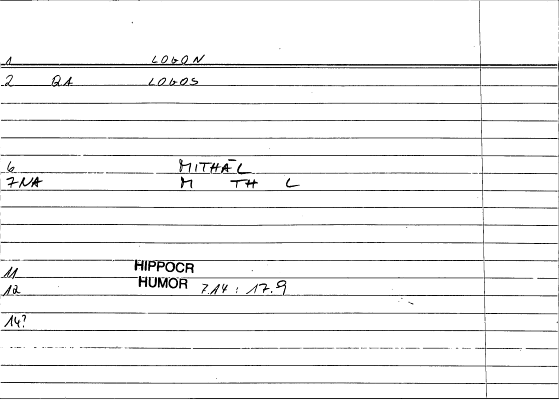 1 LOGON
2 QA LOGOS
6 MITHĀL
7 NA M TH L
11 HIPPOCR
12 HUMOR 7.14 : 17.9
14?